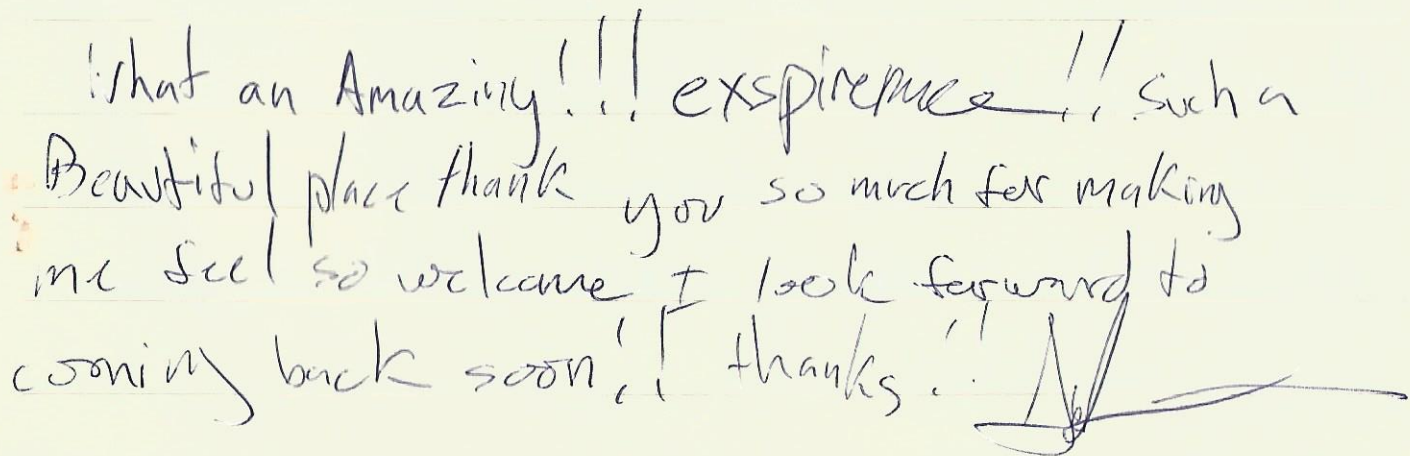 What an Amazing!!! exspirence!! such a
Beautiful place thank you so much for making
me feel so welcome I look forward to
coming back soon!! thanks!!